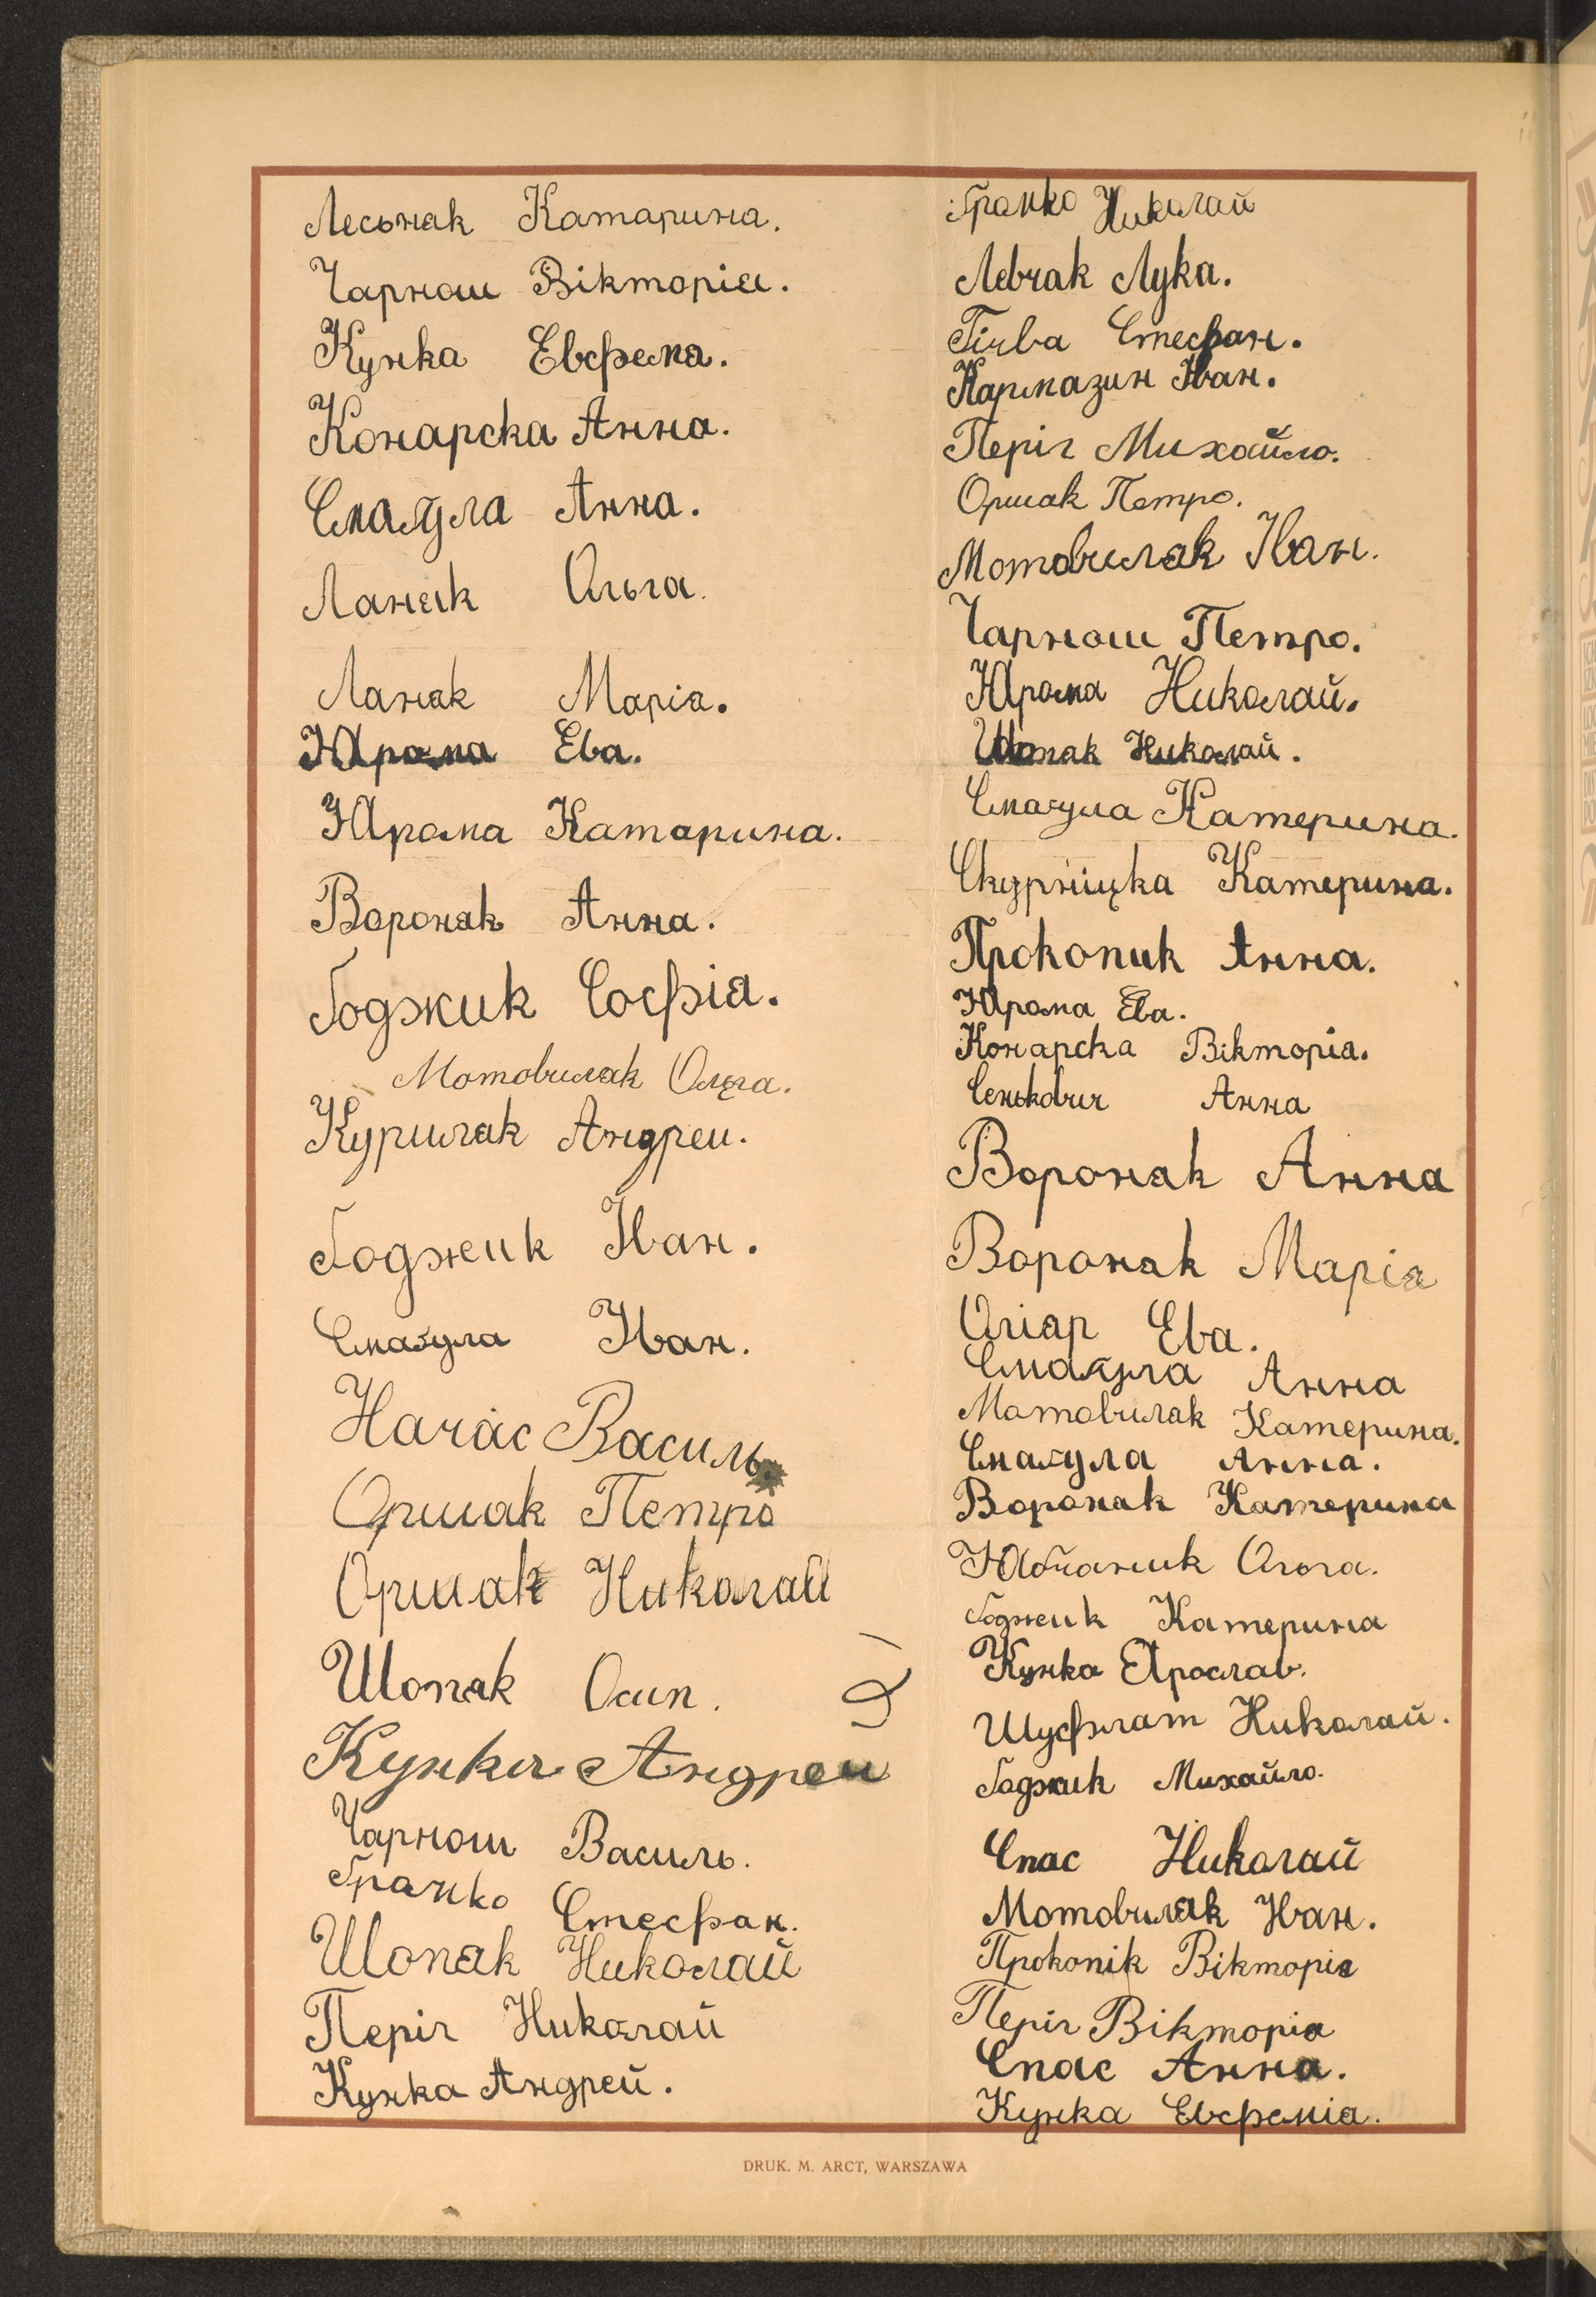 Лесьнак Катарина.
Чарнош Вікторія.
Кунка Евфема.
Конарска Анна.
Смаґула Анна.
Ланяк Ольга.
Ланяк Марія.
Юрама Ева.
Юрама Катарина.
Воронак Анна.
Годжик Софія.
Мотовиляк Ольга.
Куриляк Андреи.
Годжик Іван.
Смаґула Іван.
Начас Василь.
Оршак Петро
Оршак Николай
Шопяк Осип.
Кунка Андреи
Чарнош Василь.
Гранко Стефан.
Шопяк Николай
Періг Николай
Кунка Андрей.
Гранко Николай
Левчак Лука.
Гічва Стефан.
Кармазин Іван.
Періг Михайло.
Оршак Петро.
Мотовиляк Іван.
Чарнош Петро.
Юрама Николай.
Шопяк Николай.
Смагула Катерина.
Скурніцка Катерина.
Прокопик Анна.
Юрама Ева.
Конарска Вікторіа.
Сеньkович Анна
Воронак Анна
Воронак Марія
Оліар Ева.
Смаґула Анна
Мотовиляк Катерина.
Смаґула Анна.
Воронак Катерина
Ольга.
Годжик Катерина
Кунка Ярослав.
Шуфлат Николай.
Годжик Михайло.
Спас Николай
Мотовиляк Іван.
Прокопік Вікторія
Періг Вікторіа
Спас Анна.
Кунка Евфеміа.
DRUK. M. ARCT, WARSZAWA